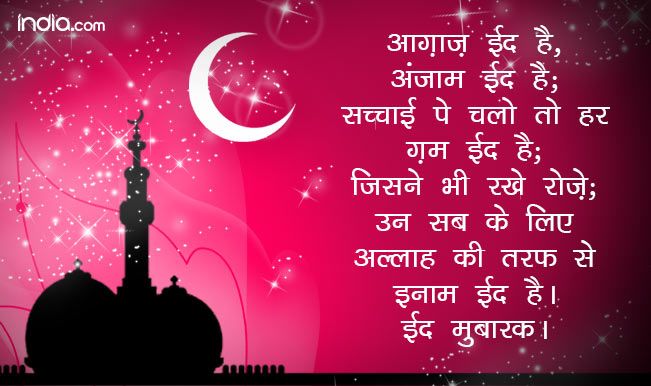 india.com
आग़ाज़ ईद है,
अंजाम ईद है;
सच्चाई पे चलो तो हर
ग़म ईद है;
जिसने भी रखे रोज़े;
उन सब के लिए
अल्लाह की तरफ से
इनाम ईद है।
ईद मुबारक।